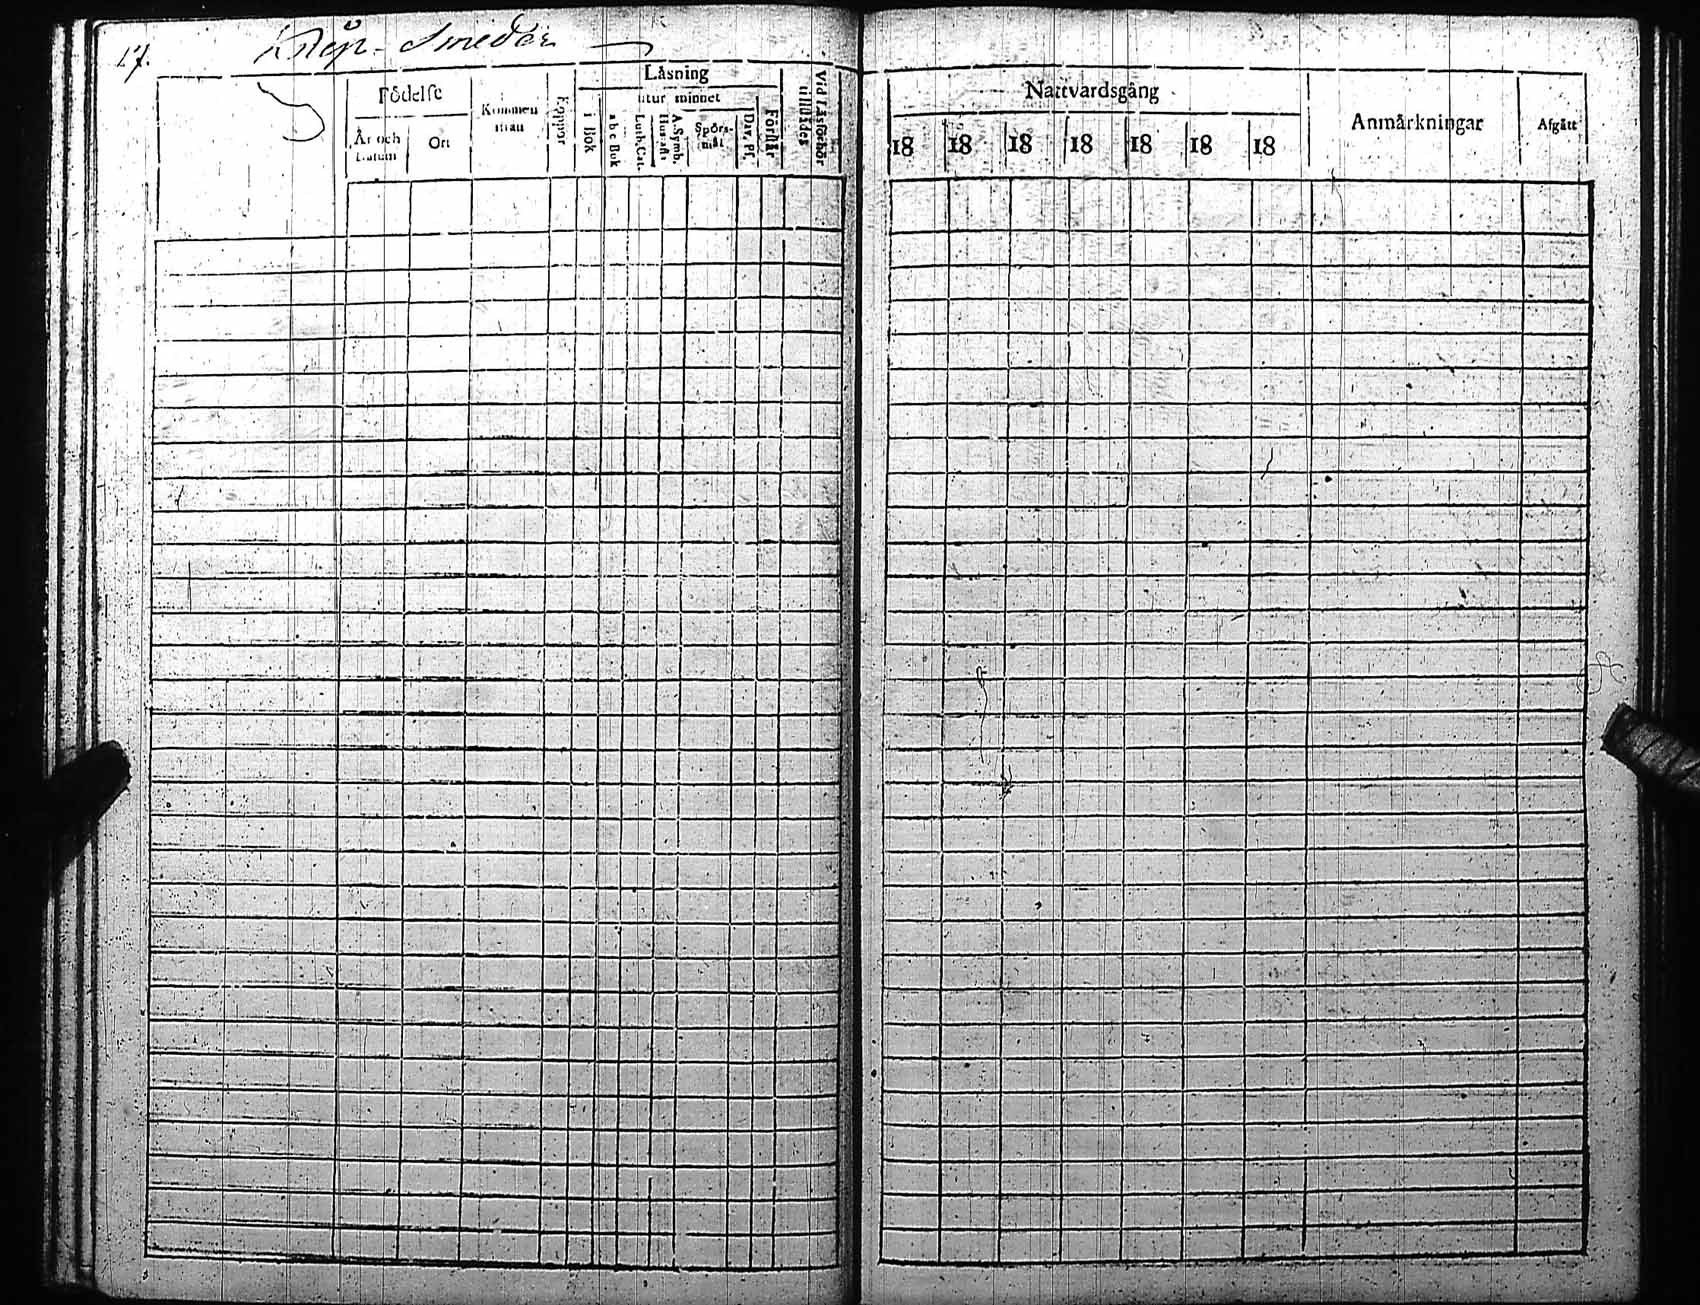 17.
Smeder
Födelse
År och
Datum
Ort
Kommen
ifrån
Koppor
Läsning
utur minnet
i Bok
a b c Bok
Luth. Cat.
Hustafl
A. Symb.
Spörs-
mål
Dav. Ps.
Förstår
Vid Läsförhör
tillstädes
Nattvardsgång
18 18 18 18 18 18 18
Anmärkningar
Afgått